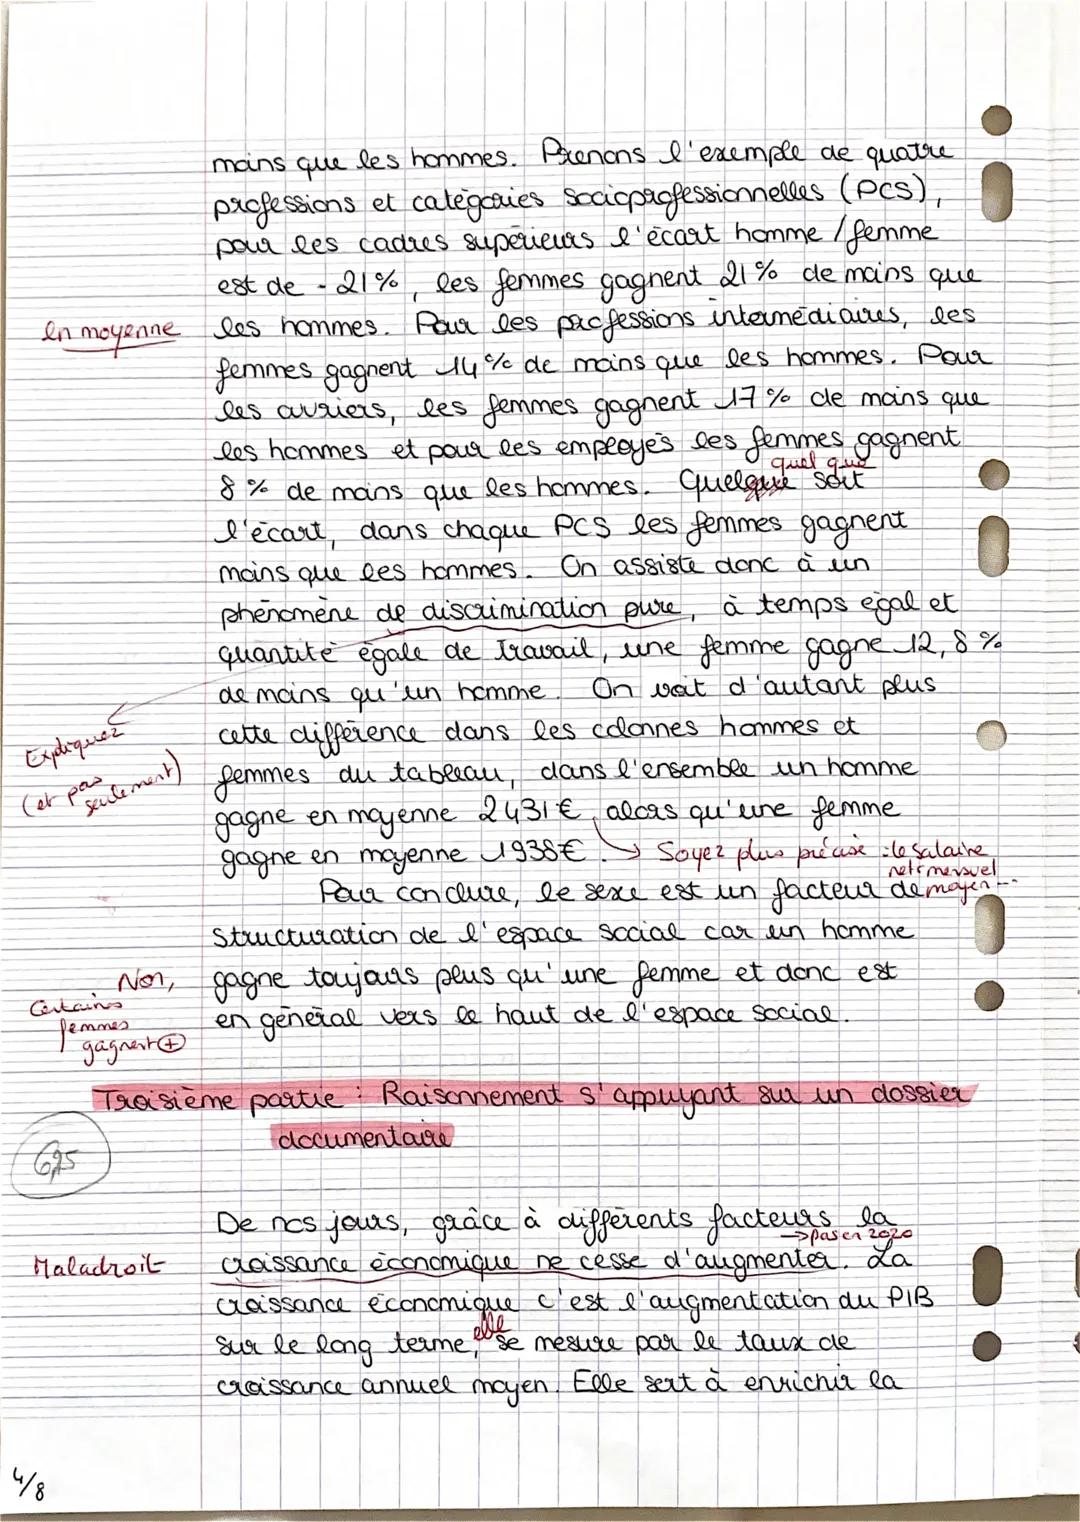 moins que les hommes. Prenons l'exemple de quatre
professions et catégories socioprofessionnelles (PCS),
pour les cadres supérieurs l'écart homme / femme
est de - 21%, les femmes gagnent 21% de moins que
en moyenne
les hommes. Pour les professions intermédiaires, les
femmes gagnent 14% de moins que les hommes. Pour
les ouvriers, les femmes gagnent 17% de moins que
les hommes et pour les employés les femmes gagnent
quel que
8% de moins que les hommes. Quelque soit
l'écart, dans chaque PCS les femmes gagnent
moins que les hommes. On assiste donc à un
phénomène de discrimination pure, à temps égal et
quantité égale de travail, une femme gagne 12,8%
de moins qu'un homme. On voit d'autant plus
Expliquez
(et pas seulement)
cette différence dans les colonnes hommes et
femmes du tableau, dans l'ensemble un homme
gagne en moyenne 2431€, alors qu'une femme
gagne en moyenne 1938€.
Soyez plus précise : le salaire
net mensuel
moyen...
Pour conclure, le sexe est un facteur de
structuration de l'espace social car un homme
Non,
certaines
femmes
gagnent +
gagne toujours plus qu'une femme et donc est
en général vers le haut de l'espace social.
Troisième partie : Raisonnement s'appuyant sur un dossier
documentaire
6,75
De nos jours, grâce à différents facteurs la
→ pas en 2020
Maladroit
croissance économique ne cesse d'augmenter. La
croissance économique c'est l'augmentation du PIB
elle
sur le long terme, se mesure par le taux de
croissance annuel moyen. Elle sert à enrichir la
4/8